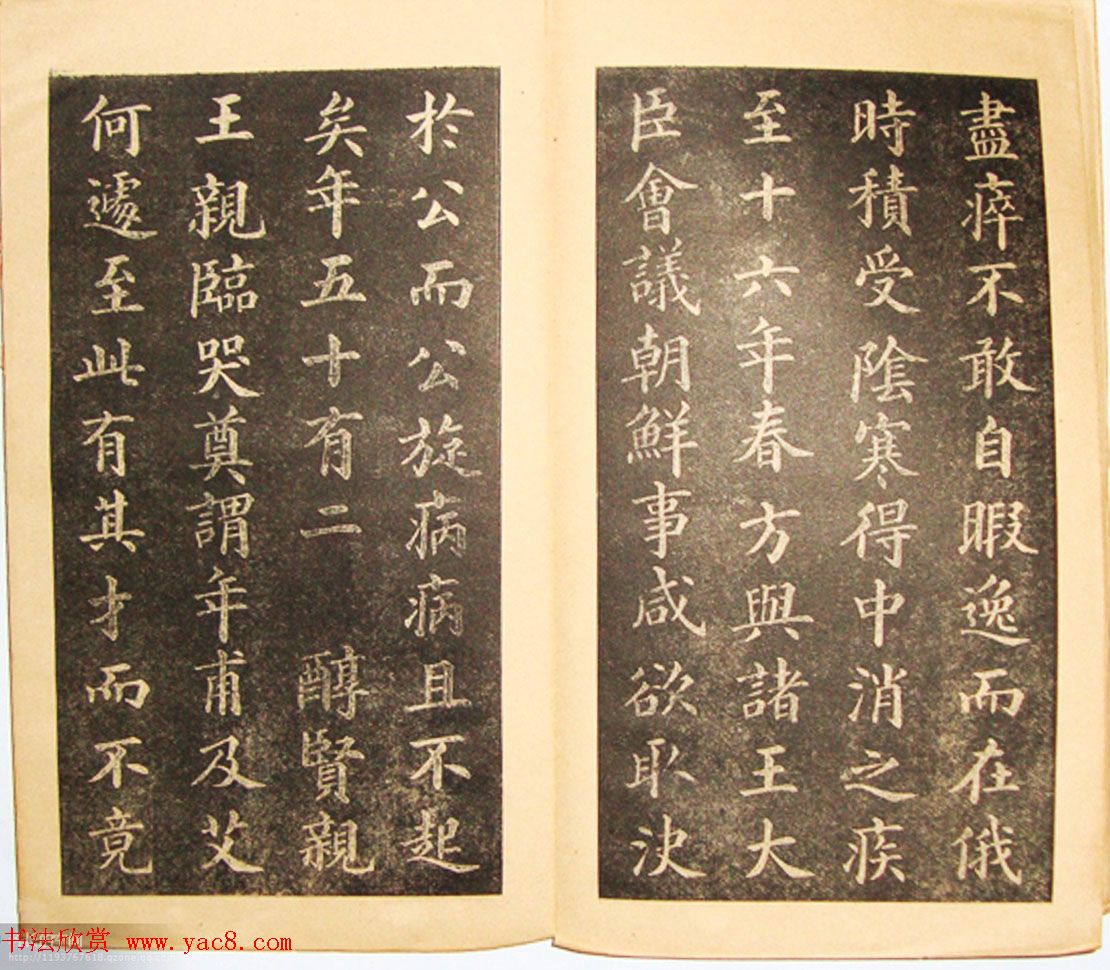 盡瘁不敢自暇逸而在俄
時積受陰寒得中消之疾
至十六年春方與諸王大
臣會議朝鮮事咸欲取決
於公而公旋病病且不起
矣年五十有二 醇賢親
王親臨哭奠謂年甫及艾
何遽至此有其才而不竟
书法欣赏 www.yac8.com
http://1193767618.qzone.qq.com